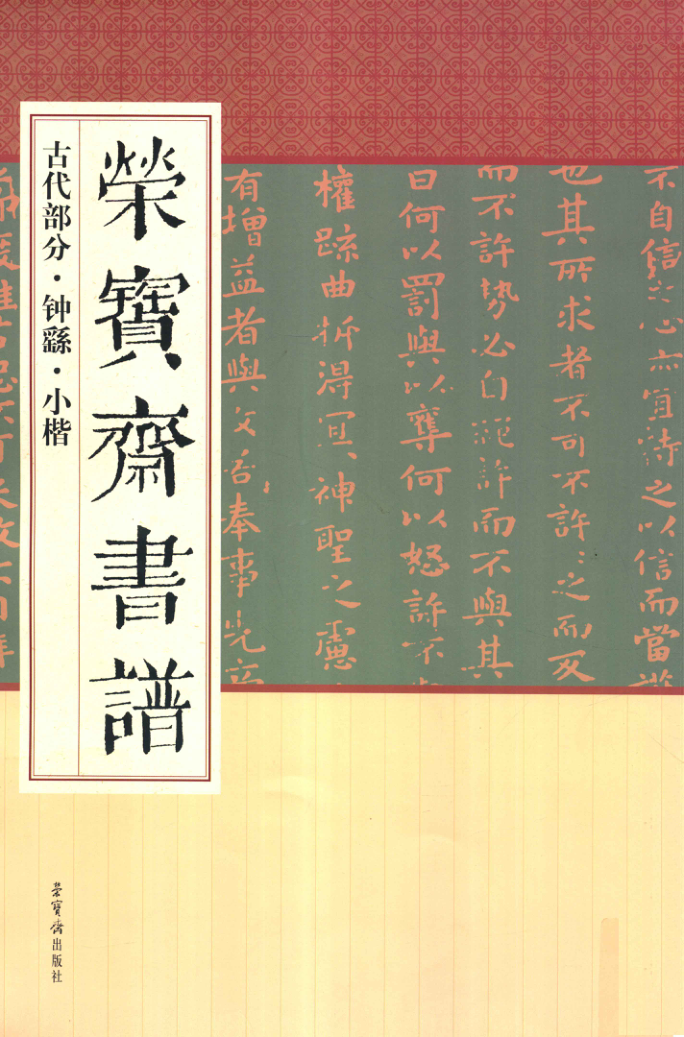 榮寶齋書譜
古代部分·钟繇·小楷
不自信之心亦宜待之以信而當護
也其所求者不可不許〻之而反
而不許勢必自絕許而不與其
曰何以罰與以奪何以怒許不
權疏曲折得宜〻神聖之慮
有增益昔與文若奉事先
榮寶齋出版社